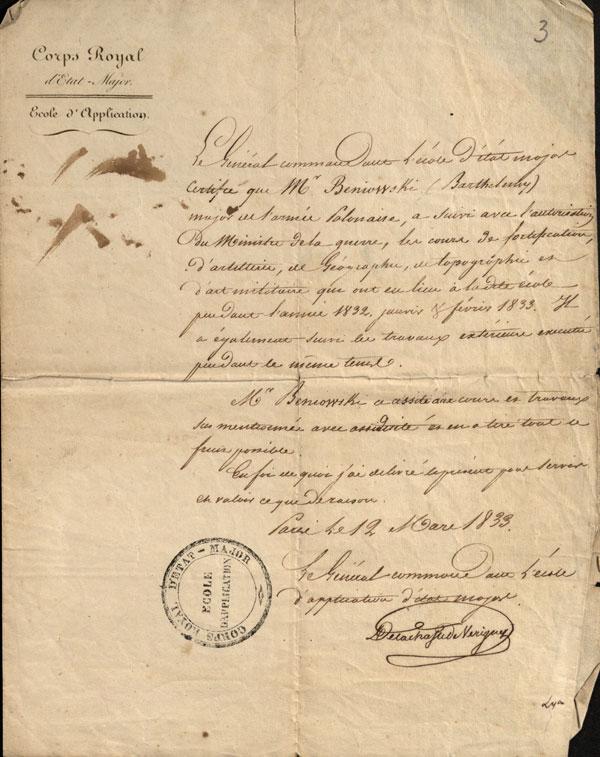 3
Corps Royal
d'Etat-Major.
Ecole d'Application.
Le Général commandant l'école d'état major
certifie que Mr Beniowski (Barthelemy)
major de l'armée Polonaise, a suivi avec l'autorisation
du Ministre de la guerre, les cours de fortification,
d'artillerie, de Géographie, de topographie et
d'art militaire qui ont eu lieu à la dite école
pendant l'année 1832, janvier & février 1833. Il
a également suivi les travaux extérieurs exécutés
pendant le même tems.
Mr Beniowski a assisté aux cours et travaux
sus mentionnés avec assiduité et en a tiré tout le
fruit possible.
En foi de quoi j'ai délivré le présent pour servir
et valoir ce que de raison.
Paris le 12 Mars 1833.
Le Général commandant l'école
d'application d'état major.
CORPS ROYAL D'ETAT-MAJOR
ECOLE
D'APPLICATION